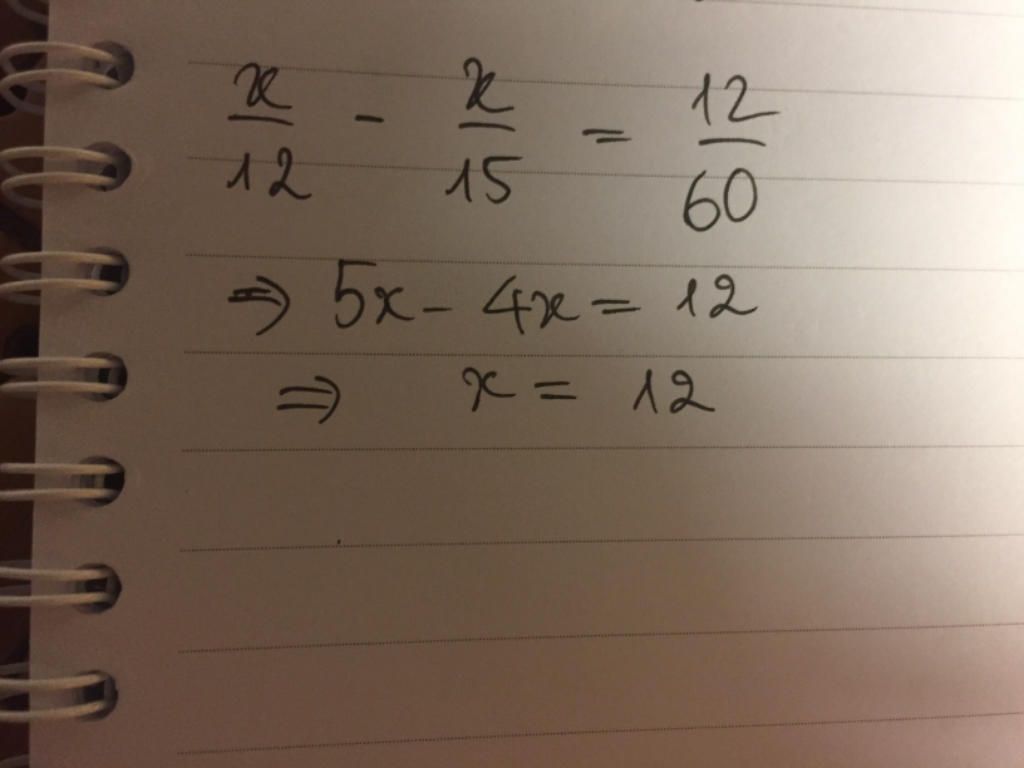 x/12 - x/15 = 12/60
⇒ 5x - 4x = 12
⇒ x = 12